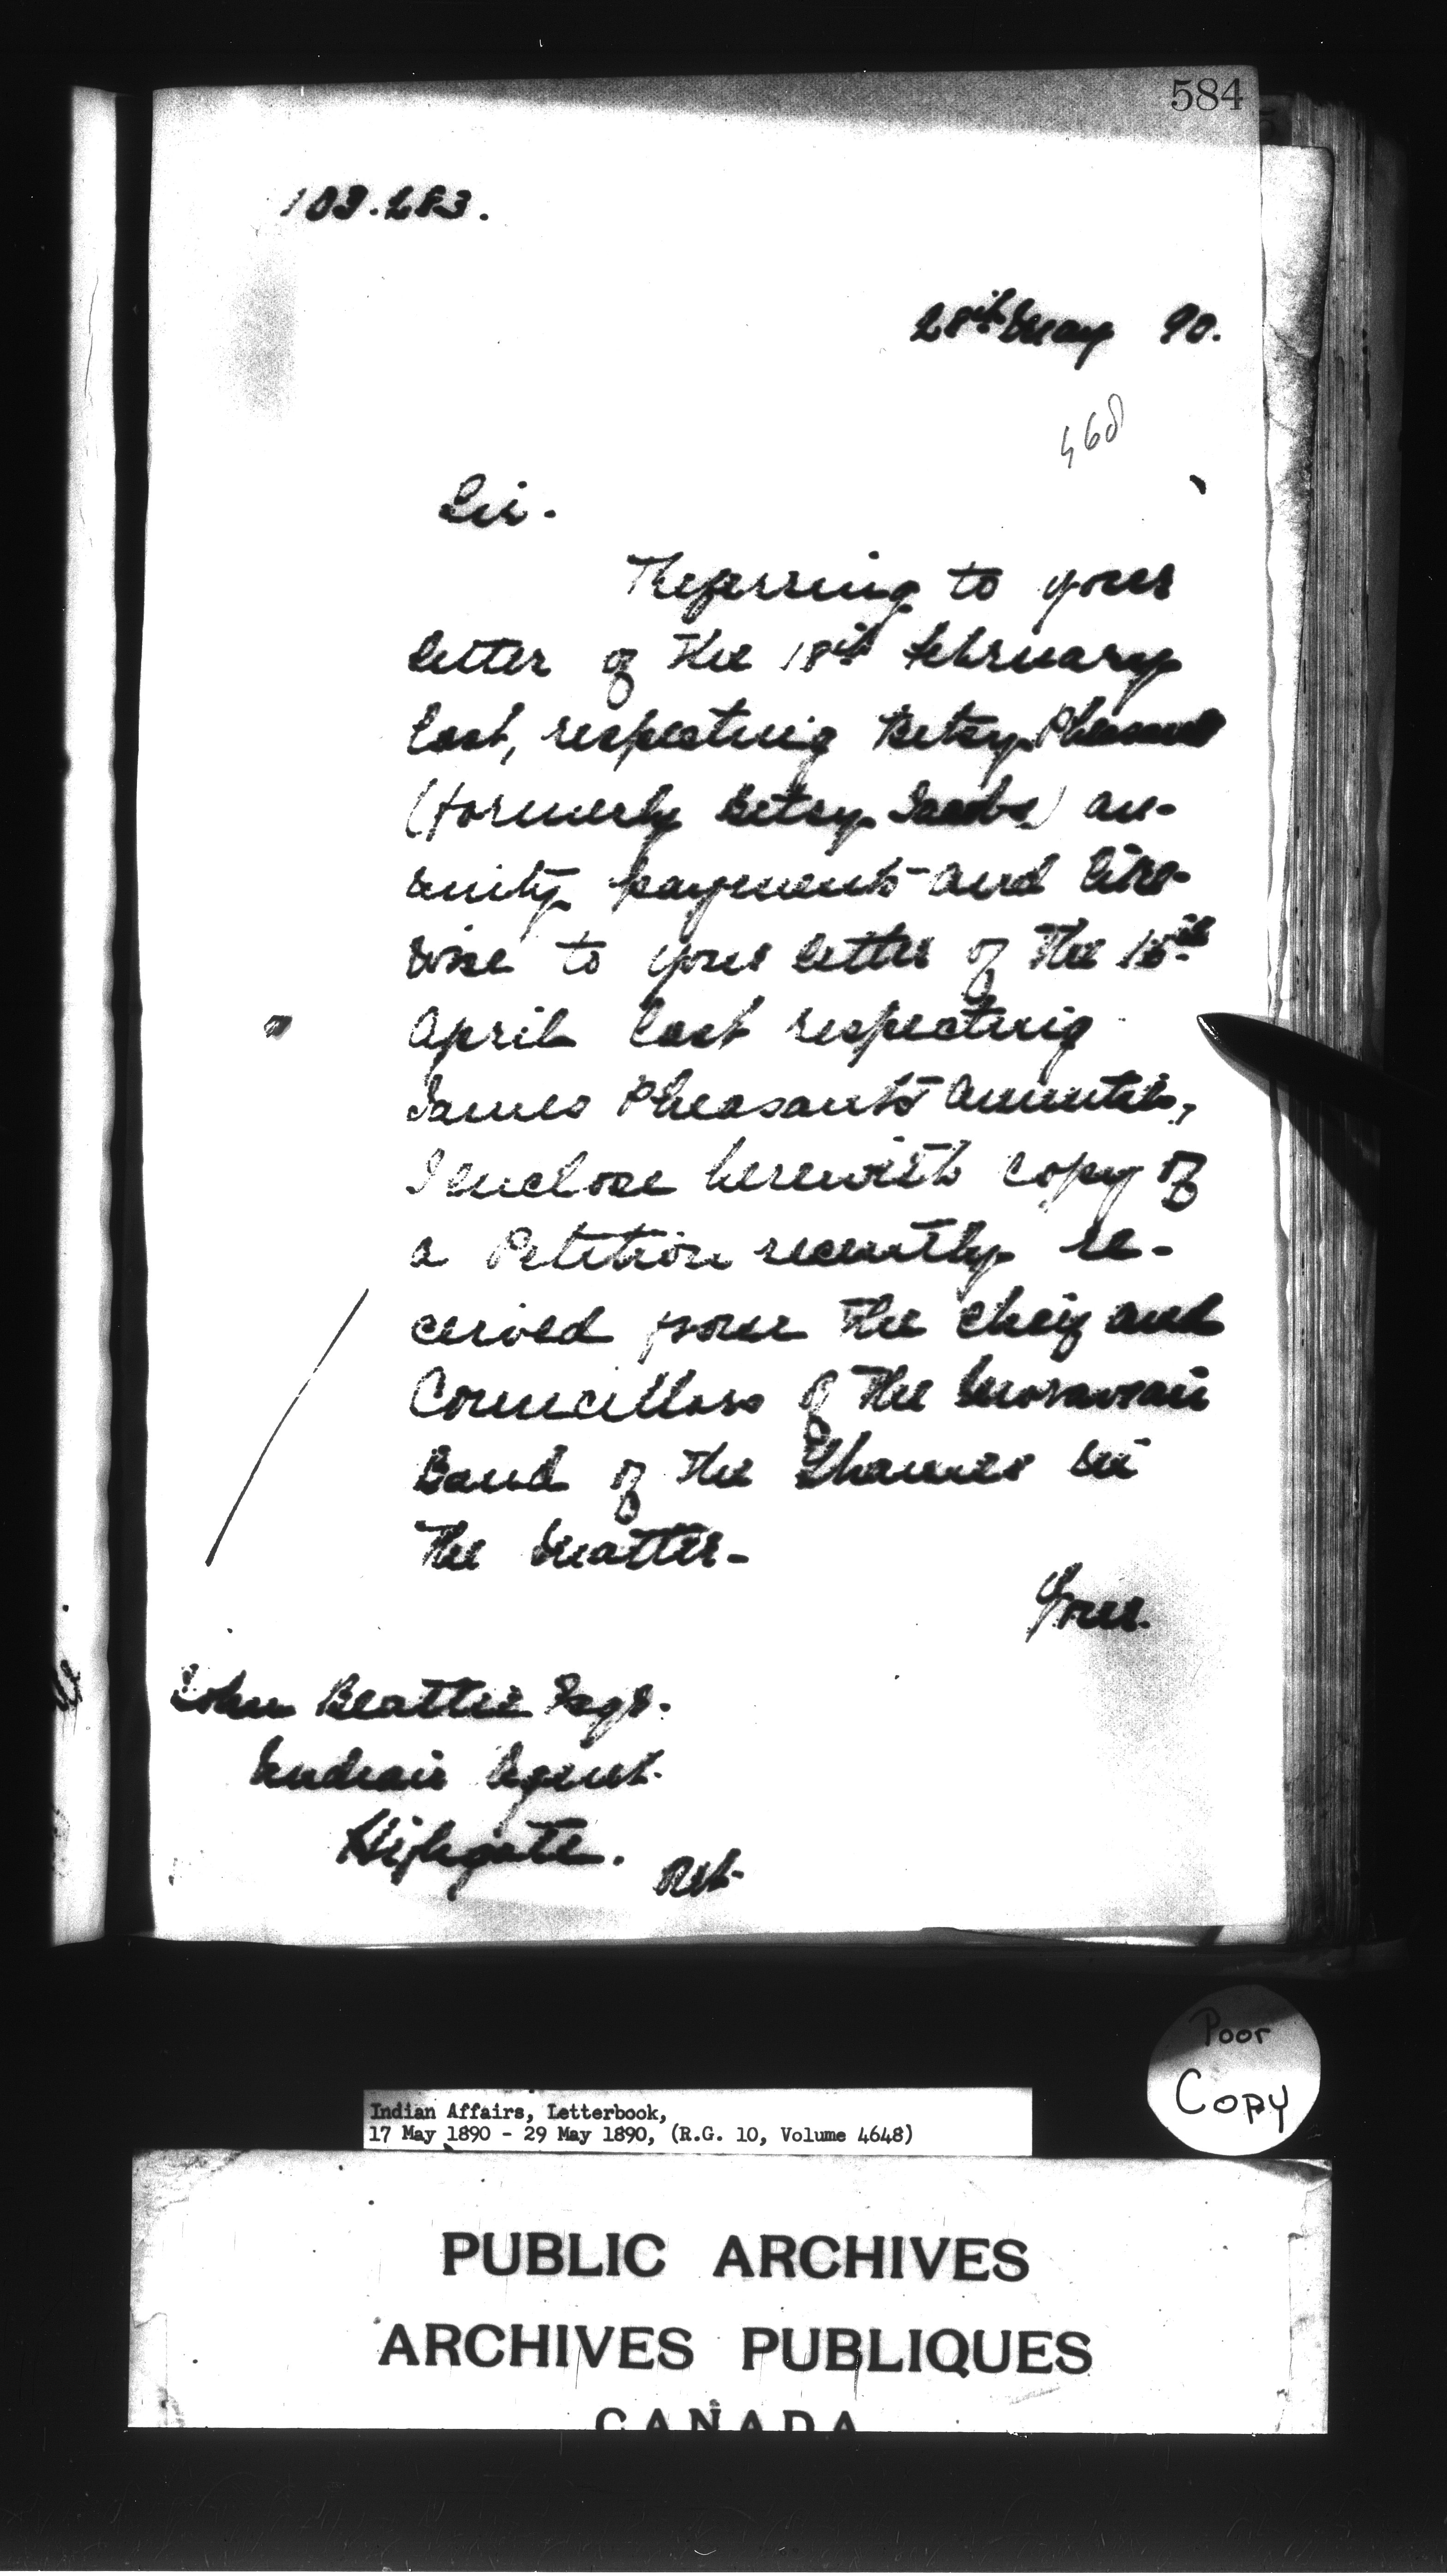 584
103.283.
28th May 90.
468
Sir.
Referring to your
letter of the 18th February
last, respecting Betsy Pheasant
(formerly Betsy Jacobs) an-
nuity payments and like-
wise to your letter of the 16th
April last respecting
James Pheasants annuities,
I enclose herewith copy of
a Petition recently re-
ceived from the Chief and
Councillors of the Moravian
Band of the Thames in
the matter-
Your.
John Beattie Esqr.
Indian Agent.
Highgate.
Poor
Copy
Indian Affairs, Letterbook,
17 May 1890 - 29 May 1890, (R.G. 10, Volume 4648)
PUBLIC ARCHIVES
ARCHIVES PUBLIQUES
CANADA